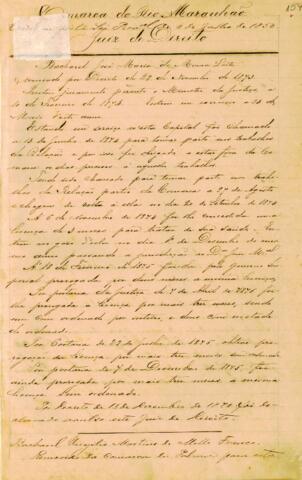 Comarca do Rio Maranhão
Juiz de Direito
Bacharel José Maria de
nomeado por Decreto de 22 de Novembro de 1873
Prestou juramento perante o Ministro da Justiça a
10 de Fevereiro de 1874. Entrou em exercicio a 21 de
Maio deste anno.
Estando em serviço nesta Capital foi chamado
a 15 de Junho de 1874 para tomar parte nos trabalhos
da Relação e por isso
Tendo sido chamado para tomar parte nos traba
lhos da Relação partio da Comarca a 27 de Agosto
e chegou de volta a ella no dia 20 de Setembro de 1874
A 6 de Novembro de 1874 foi lhe concedida uma
licença de 3 mezes para tratar de sua saúde.
trou no gozo della no dia 1º de Dezembro do mes
mo anno passando a jurisdicção ao
A 18 de Fevereiro de 1875 foi lhe pelo governo im
perial prorogada por dous mezes a mesma licença.
Por portaria da Justiça de 7 de Abril de 1875 foi
prorogada a licença por mais tres mezes, sendo
um com ordenado por inteiro, e dous com metade
do ordenado.
Por Portaria de 22 de Julho de 1875 obteve pro
rogação da licença por mais tres mezes sem ordenado
Por portaria de 7 de Dezembro de 1875, foi
ainda prorogada por mais tres mezes a mesma
licença sem ordenado.
Por Decreto de 18 de Novembro de foi de
clarado avulso este Juiz de Direito.
Bacharel Virgilio Martins de Mello Franco.
Removido da Comarca da Palma para esta